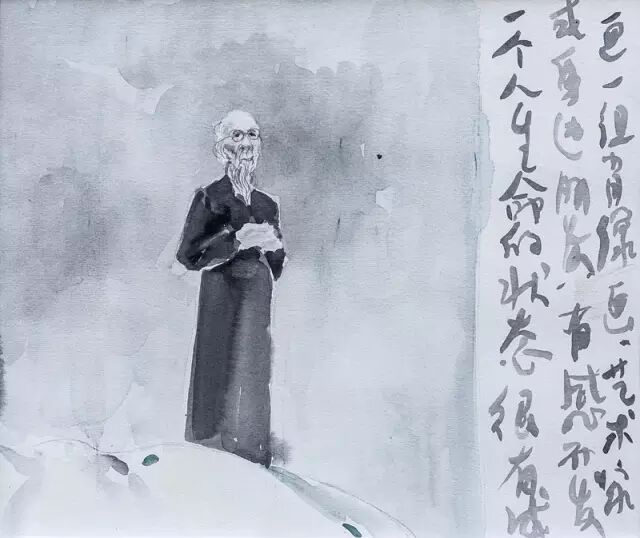 画一组肖像画、艺术家
或身边朋友、有感而发
一个人生命的状态很有